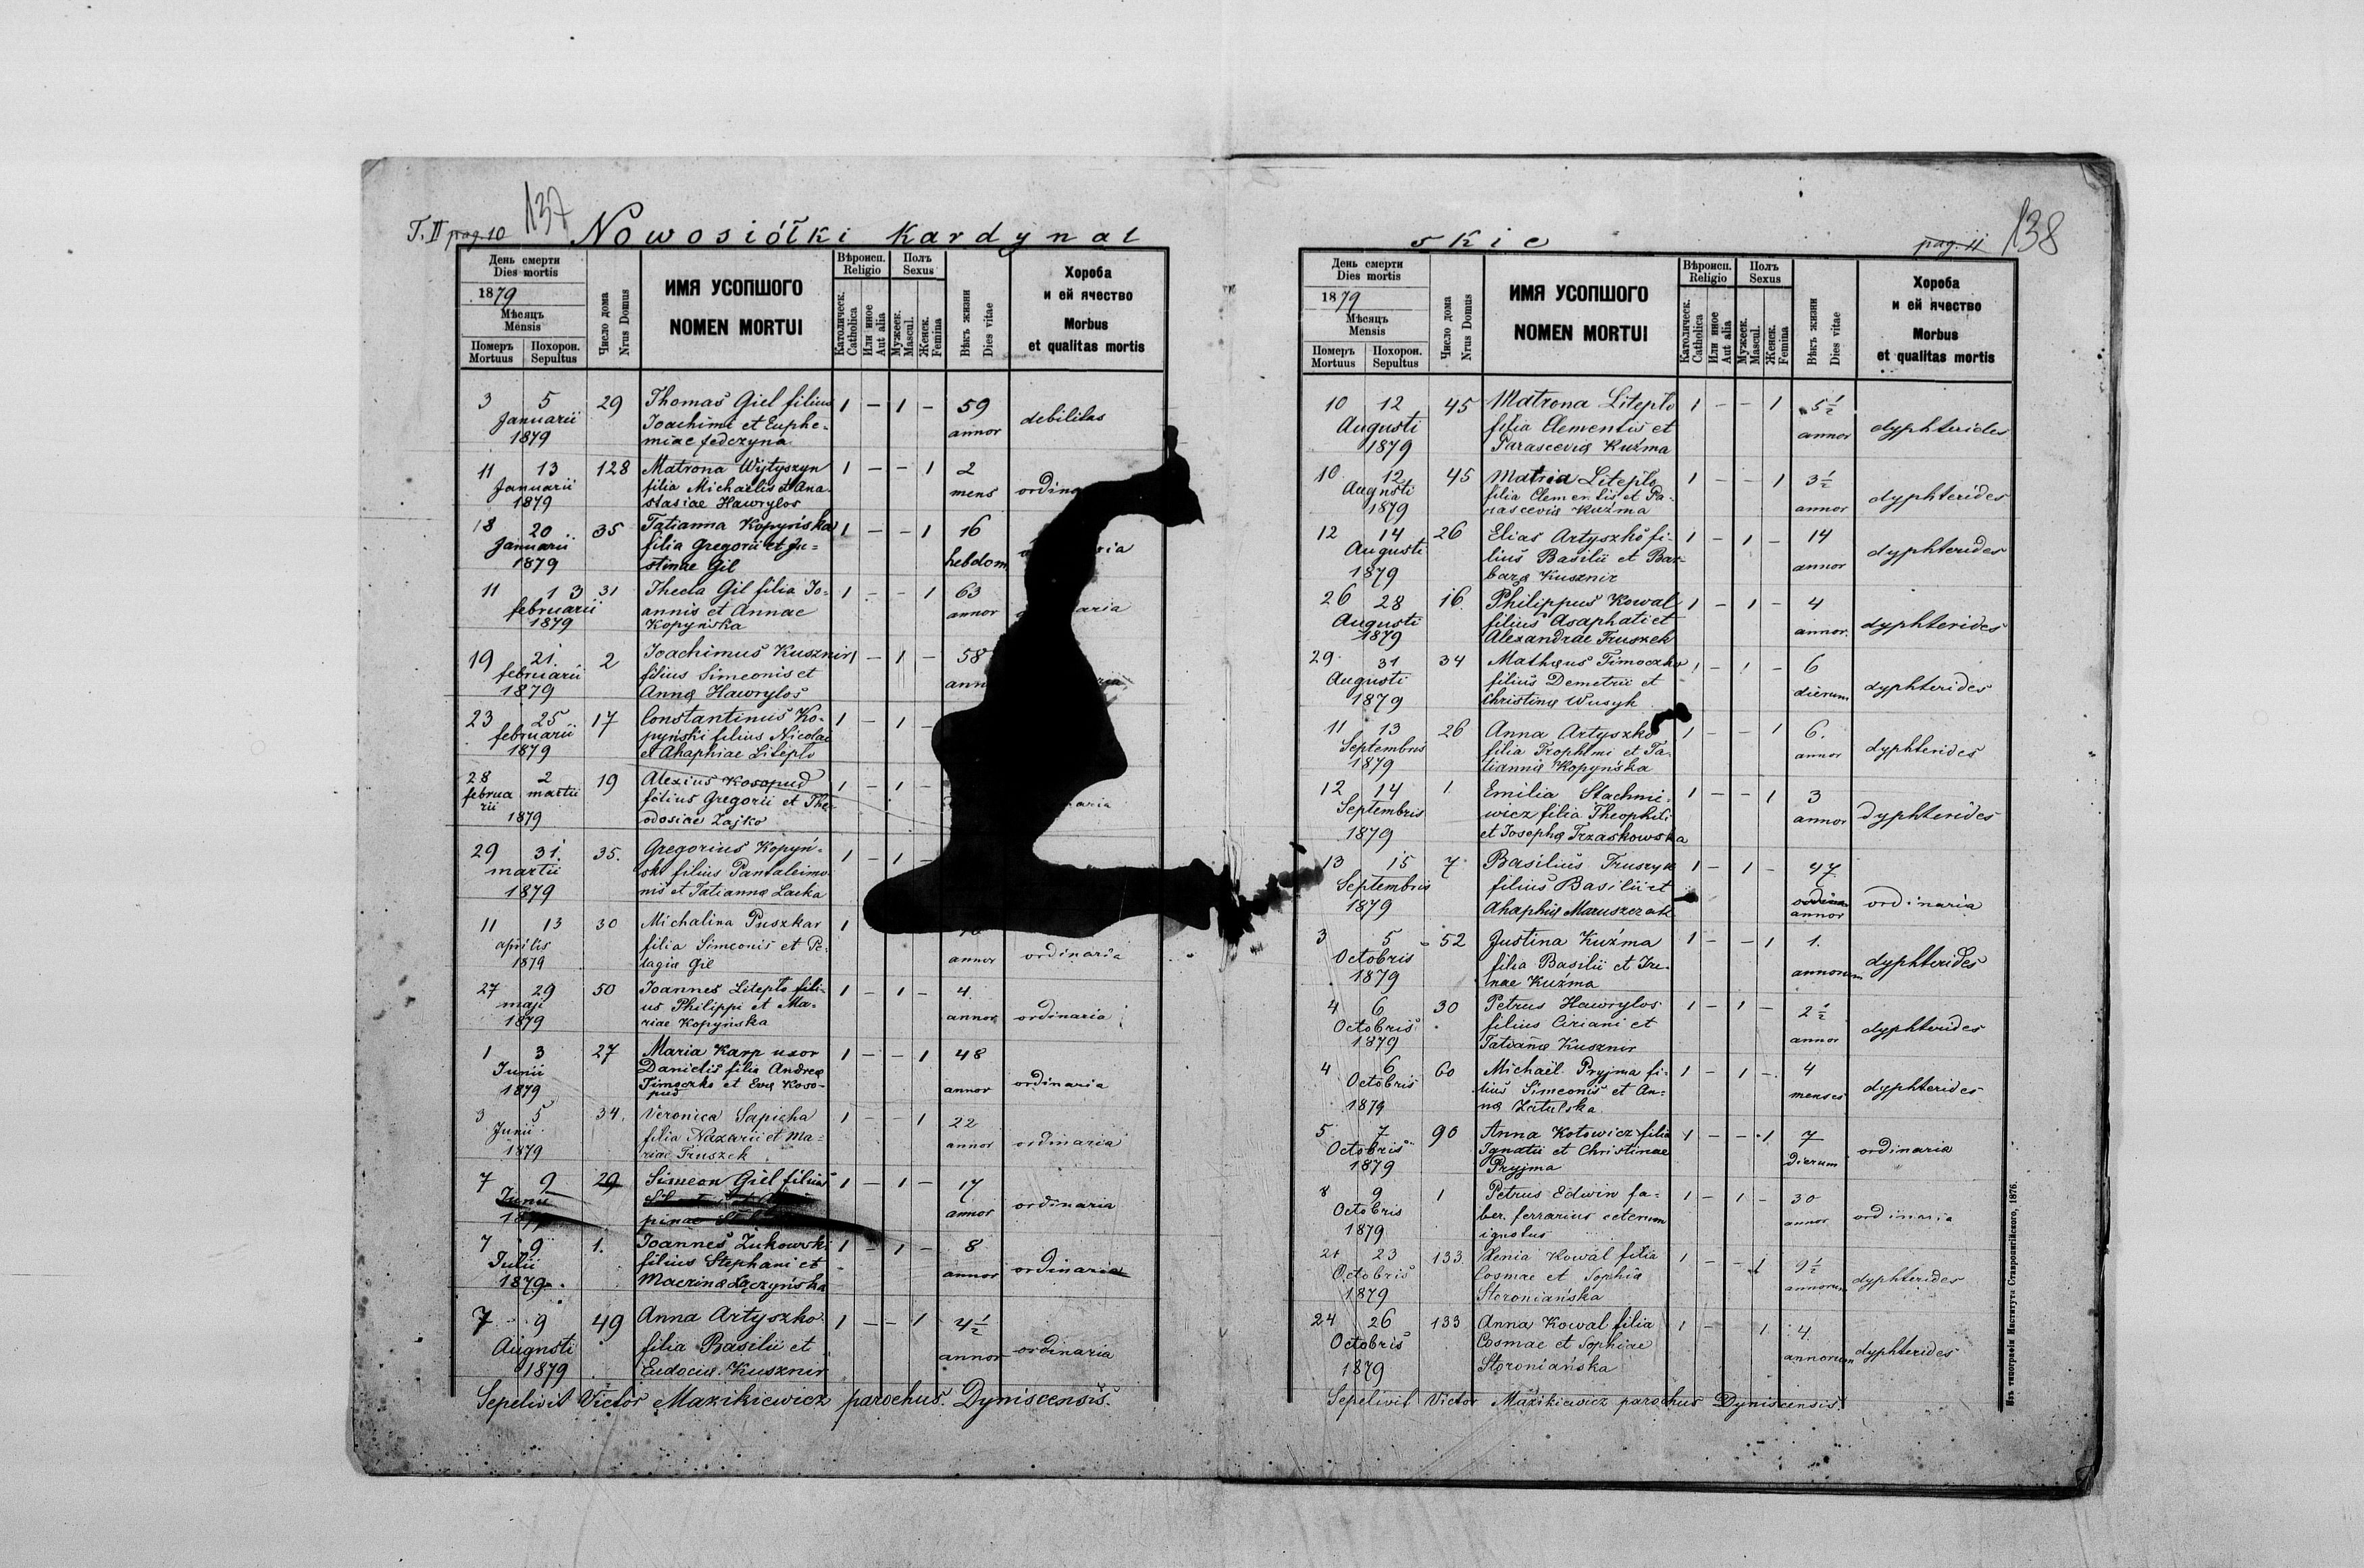 T. II pag 10
137
Nowosiółki Kardynal
День смерти
Dies mortis
1879
Мѣсяцъ
Mensis
Померъ
Mortuus
Похорон.
Sepultus
Число дома
Nrus Domus
ИМЯ УСОПШОГО
NOMEN MORTUI
Вѣроисп.
Religio
Католическ.
Catholica
Или иное
Aut alia
Полъ
Sexus
Мужеск.
Mascul.
Женск.
Femina
Вѣкъ жизни
Dies vitae
Хороба
и ей ячество
Morbus
et qualitas mortis
3 5 29 Thomas Giel filius 1 – 1 – 59
Januarii Joachimi et Euphe- annor debilitas
1879 miae fedczyna
11 13 128 Matrona Wytyszyn 1 – – 1 2
Januarii filia Michaelis et Ana- mens
1879 stasiae Hawrylos
18 20 35 Tatianna Kopyńska 1 – – 1 16
Januarii filia Gregorii et Ju=
1879 stinae Gil hebdom
11 13 31 Thecla Gil filia Jo- 1 – – 1 63
februarii annis et Annae annor
1879 Kopyńska
19 21. 2 Joachimus Kusznir 1 – 1 – 58
februarii filius Simeonis et
1879 Annę Hawrylos
23 25 17 Constantinus Ko- 1 – 1 –
februarii pyński filius Nicolai
1879 et Ahaphiae Litepło
28 2 19 Alexius Kosopud 1 – 1 –
februa martii filius Gregorii et The-
rii
1879 odosiae Zajko
29 31. 35. Gregorius Kopyń- 1 – 1
martii ski filius Pantaleimo
1879 nis et Tatiannę Lacka
11 13 30 Michalina Puszkar 1
aprilis filia Simeonis et Pe- annor ordinaria
1879 lagię Gil
27 29 50 Joannes Litepło fili- 1 – 1 – 4
maji us Philippi et Ma- annor ordinaria
1879 riae Kopyńska
1 3 27 Maria Karp uxor 1 – – 1 48
Junii Danielis filia Andreę
Timoczko et Evę Koso- annor ordinaria
1879 pud
3 5 34. Veronica Sapicha 1 – – 1 22
Junii filia Nazarii et Ma= annor ordinaria
1879 riae Truszek
7 9 29 Simeon Giel filius 1 – 1 – 17
Junii annor ordinaria
7 9 1. Joannes Zukowski 1 – 1 – 8
Julii filius Stephani et annor ordinaria
1879. Macrinę Łączyńska
7 9 49 Anna Artyszko 1 – – 1 4½
Augusti filia Basilii et annor ordinaria
1879 Eudocię Kusznir
Sepelivit Victor Mazikiewicz parochus Dyniscensis.
skie
pag. 11
138
День смерти
Dies mortis
1879
Мѣсяцъ
Mensis
Померъ
Mortuus
Похорон.
Sepultus
Число дома
Nrus Domus
ИМЯ УСОПШОГО
NOMEN MORTUI
Вѣроисп.
Religio
Католическ.
Catholica
Или иное
Aut alia
Полъ
Sexus
Мужеск.
Mascul.
Женск.
Femina
Вѣкъ жизни
Dies vitae
Хороба
и ей ячество
Morbus
et qualitas mortis
10 12 45 Matrona Litepło 1 – – 1 5½
Augusti filia Clementis et annor dyphterides
1879 Parascevię Kuźma
10 12 45 Maria Litepło 1 – – 1 3½
Augusti filia Clementis et Pa- dyphterides
1879 rascevię Kuźma annor
12 14 26 Elias Artyszko fi- 1 – 1 – 14
Augusti lius Basilii et Bar- dyphterides
1879 barę Kusznir annor
26 28 16 Philippus Kowal 1 – 1 – 4
Augusti filius Asaphati et annor. dyphterides
1879 Alexandrae Truszek
29 31 34 Matheus Timoczko 1 – 1 – 6
Augusti filius Demetrii et dierum dyphterides
1879 Christinę Wusyk
11 13 26 Anna Artyszko 1 – – 1 6.
Septembris filia Trophimi et Ta- annor dyphterides
1879 tiannę Kopyńska
12 14 1 Emilia Stachnie- 1 – – 1 3
Septembris wicz filia Theophili annor dyphterides
1879 et Josephę Trzaskowska
13 15 7 Basilius Truszyk 1 – 1 – 47
Septembris filius Basilii et ordinaria
1879 Ahaphię Maruszczak annor
3 5 52 Justina Kuźma 1 – – 1 1.
Octobris filia Basilii et Ire- annorum dyphterides
1879 nae Kuźma
4 6 30 Petrus Hawrylos 1 – 1 – 2½
Octobris filius Ciriani et annor dyphterides
1879 Tatianę Kusznir
4 6 60 Michaël Pryjma fi- 1 – 1 – 4
Octobris lius Simeonis et An- menses dyphterides
1879 nę Zatulska
5 7 90 Anna Kotowicz filia 1 – – 1 7
Octobris Ignatii et Christinae dierum ordinaria
1879 Pryjma
8 9 1 Petrus Edwin fa- 1 – 1 – 30
Octobris ber. ferrarius ceterum annor ordinaria
1879 ignotus
21 23 133 Xenia Kowal filia 1 – – 1 9½
Octobris Cosmae et Sophię annorum dyphterides
1879 Storoniańska
24 26 133 Anna Kowal filia 1 – 1 4
Octobris Cosmae et Sophiae annorum dyphterides
1879 Storoniańska
Sepelivit Victor Mazikiewicz parochus Dyniscensis.
Изъ типографіи Института Ставропигійского, 1876.